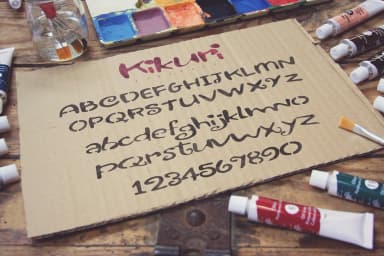 Kikuri
ABCDEFGHIJKLMN
OPQRSTUVWXYZ
abcdefghijklmno
pqrstuvwxyz
1234567890